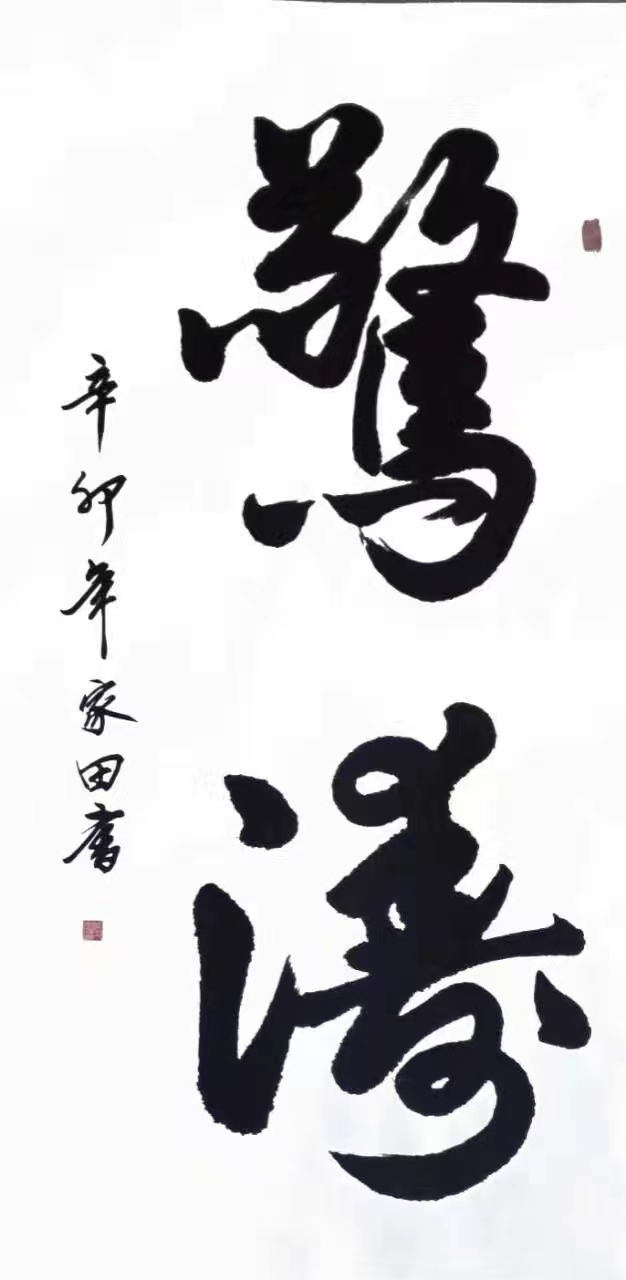 驚濤
辛卯年家田書